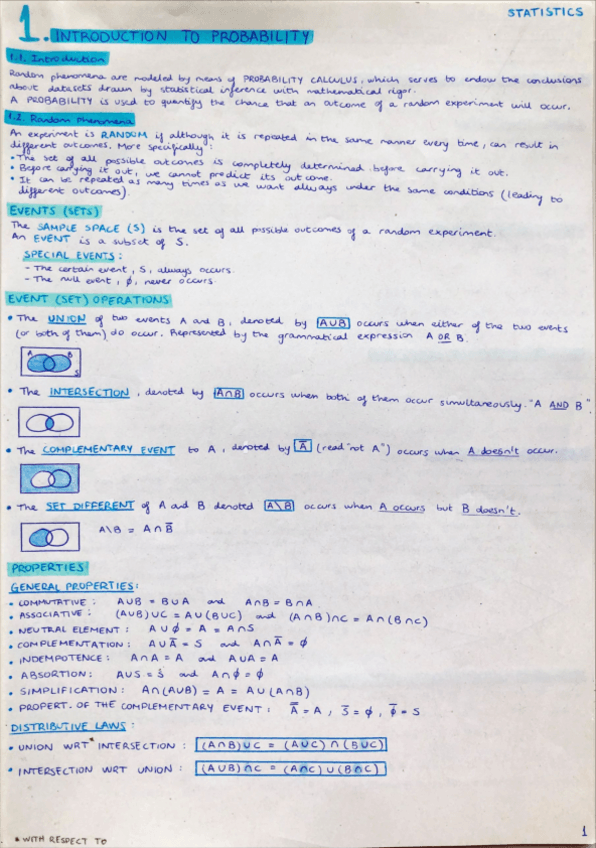 STATISTICS
1. INTRODUCTION TO PROBABILITY
1.1. Introduction
Random phenomena are modeled by means of PROBABILITY CALCULUS, which serves to endow the conclusions
about datasets drawn by statistical inference with mathematical rigor.
A PROBABILITY is used to quantify the chance that an outcome of a random experiment will occur.
1.2. Random phenomena
An experiment is RANDOM if although it is repeated in the same manner every time, can result in
different outcomes. More specifically:
• The set of all possible outcomes is completely determined before carrying it out.
• Before carrying it out, we cannot predict its outcome.
• It can be repeated as many times as we want always under the same conditions (leading to
different outcomes).
EVENTS (SETS)
The SAMPLE SPACE (S) is the set of all possible outcomes of a random experiment.
An EVENT is a subset of S.
SPECIAL EVENTS:
- The certain event, S, always occurs.
- The null event, ϕ, never occurs.
EVENT (SET) OPERATIONS
• The UNION of two events A and B, denoted by A∪B occurs when either of the two events
(or both of them) do occur. Represented by the grammatical expression A OR B.
A B
S
• The INTERSECTION, denoted by A∩B occurs when both of them occur simultaneously. "A AND B".
• The COMPLEMENTARY EVENT to A, denoted by A̅ (read "not A") occurs when A doesn't occur.
• The SET DIFFERENT of A and B denoted A\B occurs when A occurs but B doesn't.
A\B = A∩B̅
PROPERTIES
GENERAL PROPERTIES:
• COMMUTATIVE: A∪B = B∪A and A∩B = B∩A
• ASSOCIATIVE: (A∪B)∪C = A∪(B∪C) and (A∩B)∩C = A∩(B∩C)
• NEUTRAL ELEMENT: A∪ϕ = A = A∩S
• COMPLEMENTATION: A∪A̅ = S and A∩A̅ = ϕ
• INDEMPOTENCE: A∩A = A and A∪A = A
• ABSORTION: A∪S = S and A∩ϕ = ϕ
• SIMPLIFICATION: A∩(A∪B) = A = A∪(A∩B)
• PROPERT. OF THE COMPLEMENTARY EVENT: A̿ = A, S̅ = ϕ, ϕ̅ = S
DISTRIBUTIVE LAWS:
• UNION WRT* INTERSECTION: (A∩B)∪C = (A∪C)∩(B∪C)
• INTERSECTION WRT UNION: (A∪B)∩C = (A∩C)∪(B∩C)
* WITH RESPECT TO
1